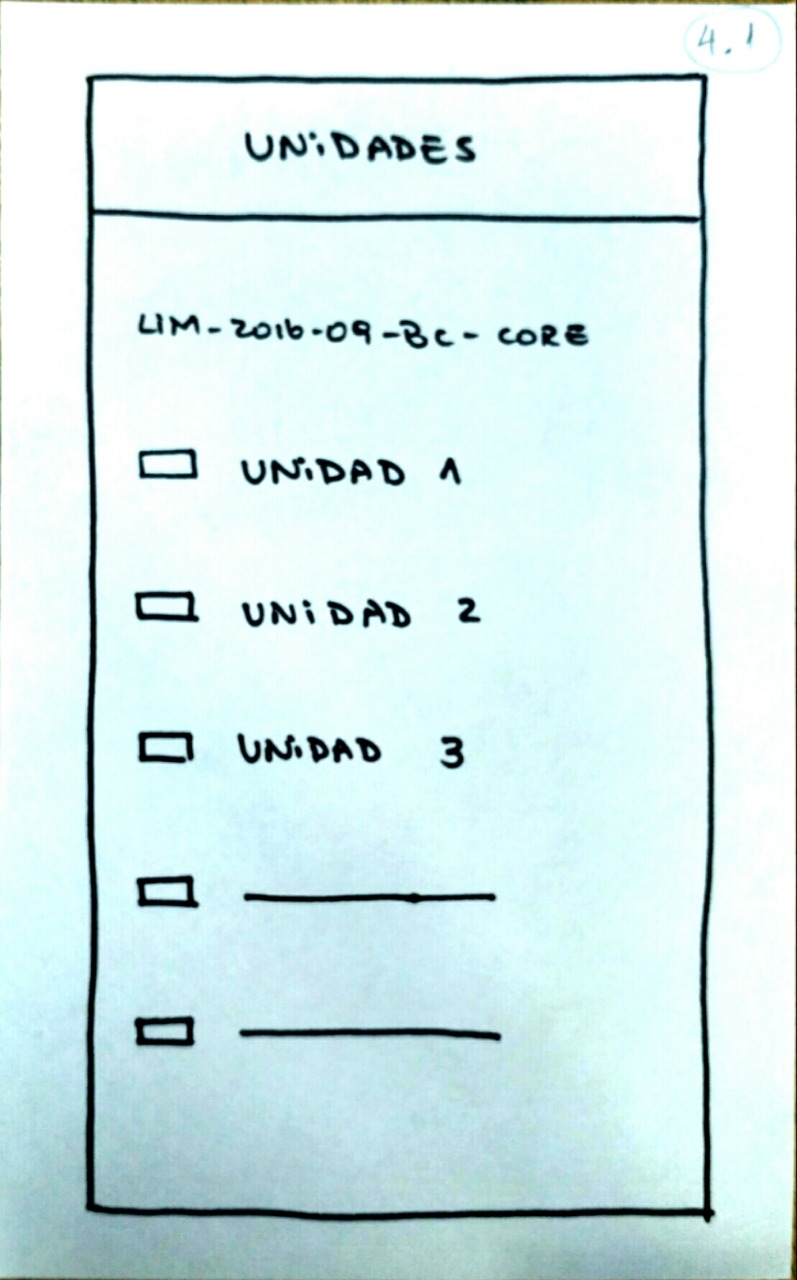 4.1
UNiDADES
LIM-2016-09-BC-CORE
UNiDAD 1
UNiDAD 2
UNiDAD 3